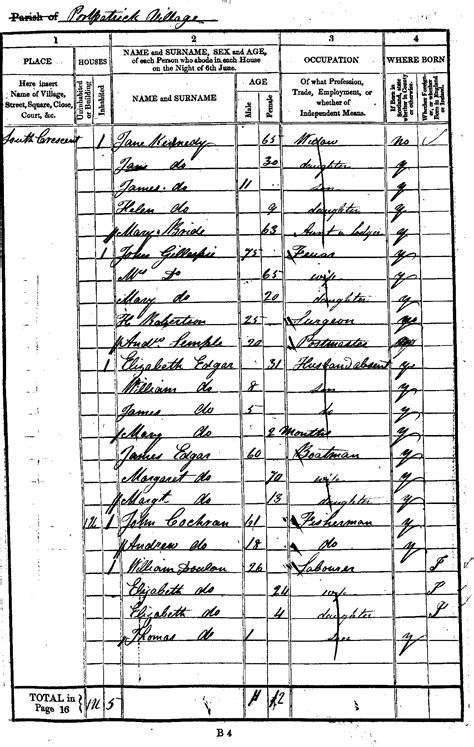 Parish of Portpatrick Village
1 2 3 4
PLACE HOUSES NAME and SURNAME, SEX and AGE, of each Person who abode in each House on the Night of 6th June. OCCUPATION WHERE BORN
Here insert Name of Village, Street, Square, Close, Court, &c. Uninhabited or Building Inhabited NAME and SURNAME AGE Male Female Of what Profession, Trade, Employment, or whether of Independent Means. If Born in Scotland, state whether in County or otherwise. Whether Foreigner, or whether Born in England or Ireland.
South Crescent 1 Jane Kennedy 65 Widow no
Jane do 30 daughter y
James do 11 son y
Helen do 9 daughter y
Mary 63 Aunt & Lodger y
1 John Gillespie 75 Feuar y
Mrs Do 65 wife y
Mary do 20 daughter y
H 25 Surgeon
Andw Semple 20 Postmaster
1 Elizabeth Edgar 31 Husband absent y
William do 8 son y
James do 5 do y
Mary do 2 Months y
James Edgar 60 Boatman y
Margaret do 70 wife y
Margt do 13 daughter y
1 John Cochran 61 Fisherman y
Andrew do 18 do y
1 William 26 Labourer
Elizabeth do 24 wife
Elizabeth do 4 daughter
Thomas do 1 son y
TOTAL in Page 16 5 11 12
B 4